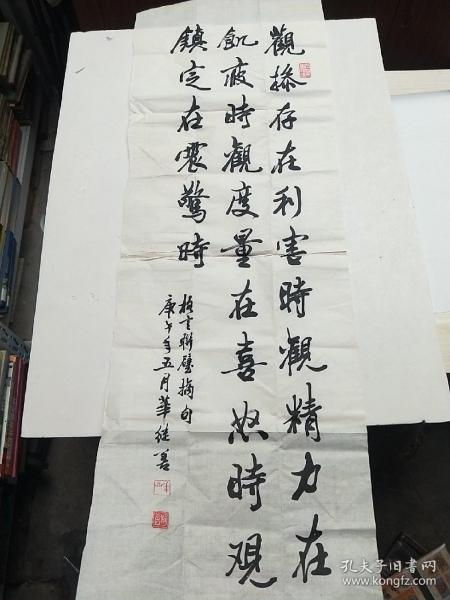 觀操存在利害時觀精力在
飢疲時觀度量在喜怒時观
鎮定在震驚時
格言聯璧摘句
庚午年五月華继善
孔夫子旧书网
www.kongfz.com